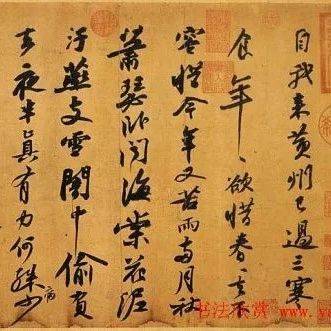 自我來黃州已過三寒
食年〻欲惜春〻去
容惜今年又苦雨兩月秋
蕭瑟卧聞海棠花泥
汙燕支雪闇中偷負
去夜半真有力何殊少
病
书法欣赏 www.y